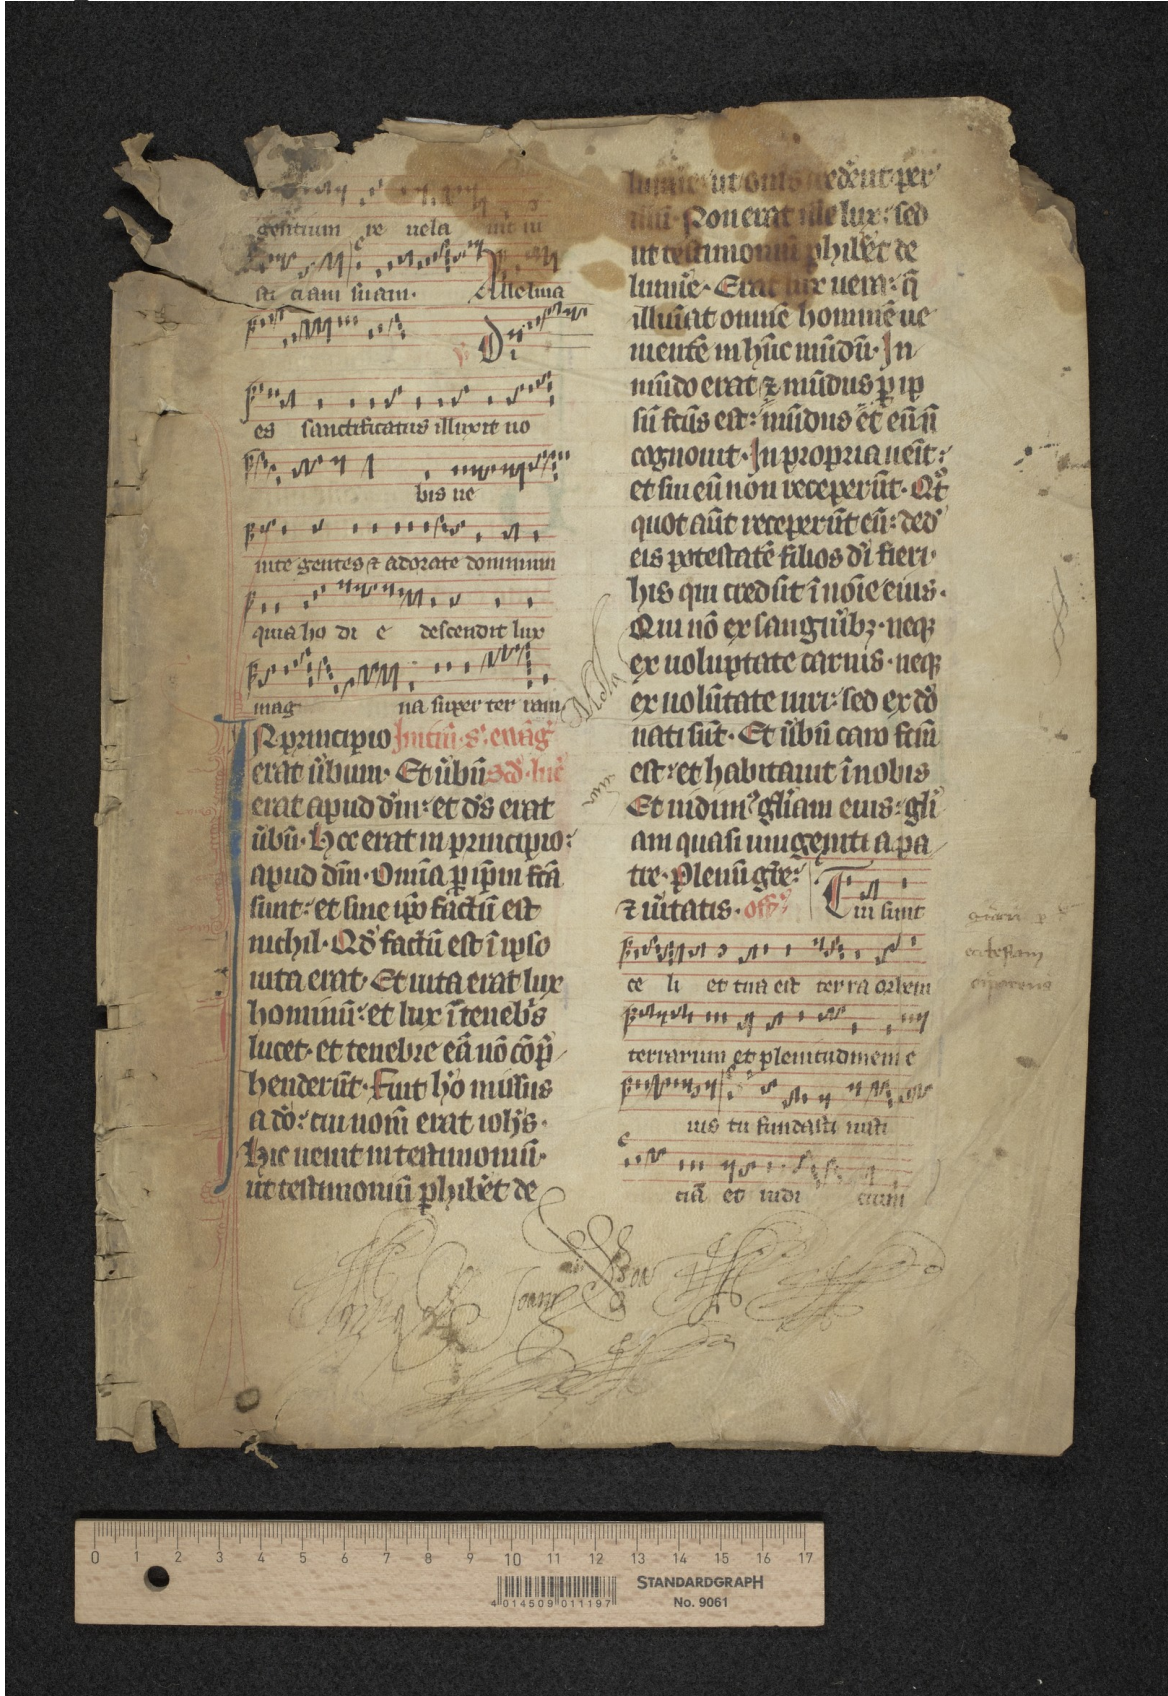 gentium re uela uit iu
sti ciam suam. Alleluia
℣ Di
es sanctificatus illuxit no
bis ue
nite gentes ⁊ adorate dominum
quia ho di e descendit lux
mag na super ter ram
IN principio Initiū. s. ewāg̃
erat ūbum. Et ūbū scd. luc̄
erat apud dm̄: et ds̄ erat
ūbū. Hoc erat in principio:
apud dm̄. Omīa ꝑ ip̄m fc̄a
sunt: et sine ip̄o factū est
nichil. Qd̓ factū est ī ipso
uita erat. Et uita erat lux
hominū: et lux ī teneb̓s
lucet. et tenebre eā nō cōp̄
henderūt. Fuit hō missus
a dō: cui nom̄ erat ioh̄s.
Hic uenit in testimoniū.
ut testimoniū phibēt de
lumīe: ut om̄s credent per
illū. Non erat ille lux: sed
ut testimoniū phibēt de
lumīe. Erat lux uera: q̄
illuīat omnē hominē ue
nientē in hūc mūdū. In
mūdo erat ⁊ mūdus ꝑ ip
sū fc̄us est: mūdus ēt eū ñ
cognouit. In propria ueīt:
et sui eū non receperūt. Qt̓
quot aūt receperūt eū: ded̓
eis potestatē filios dī fieri.
his qui credūt ī noīe eius.
Qui nō ex sanguībꝫ. neqꝫ
ex uoluptate carnis. neqꝫ
ex uolūtate uiri: sed ex dō
nati sūt. Et ūbū caro fc̄ū
est: et habitauit ī nobis
Et uidimꝰ gl̄iam eius: gl̄i
am quasi unigeniti a pa
tre. Plenū gr̄e:
⁊ ūitatis. off̄ Tui sunt
ce li et tua est ter ra orbem
terrarum et plenitudinem e
ius tu fundasti iusti
ciā et iudi cium
4 014509 011197
STANDARDGRAPH
No. 9061
0 1 2 3 4 5 6 7 8 9 10 11 12 13 14 15 16 17